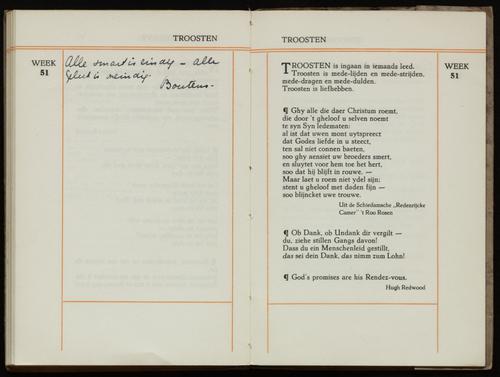 TROOSTEN
WEEK
51
Alle smart is eindig – alle
geluk is oneindig.
Boutens –
TROOSTEN
WEEK
51
TROOSTEN is ingaan in iemands leed.
Troosten is mede-lijden en mede-strijden,
mede-dragen en mede-dulden.
Troosten is liefhebben.
¶ Ghy alle die daer Christum roemt,
die door 't gheloof u selven noemt
te syn Syn ledematen:
al ist dat uwen mont uytspreect
dat Godes liefde in u steect,
ten sal niet connen baeten,
soo ghy aensiet uw broeders smert,
en sluytet voor hem toe het hert,
soo dat hij blijft in rouwe. —
Maar laet u roem niet ydel sijn;
stent u gheloof met daden fijn —
soo blijncket uwe trouwe.
Uit de Schiedamsche „Redenrijcke
Camer" 't Roo Rosen
¶ Ob Dank, ob Undank dir vergilt —
du, ziehe stillen Gangs davon!
Dass du ein Menschenleid gestillt,
das sei dein Dank, das nimm zum Lohn!
¶ God's promises are his Rendez-vous.
Hugh Redwood